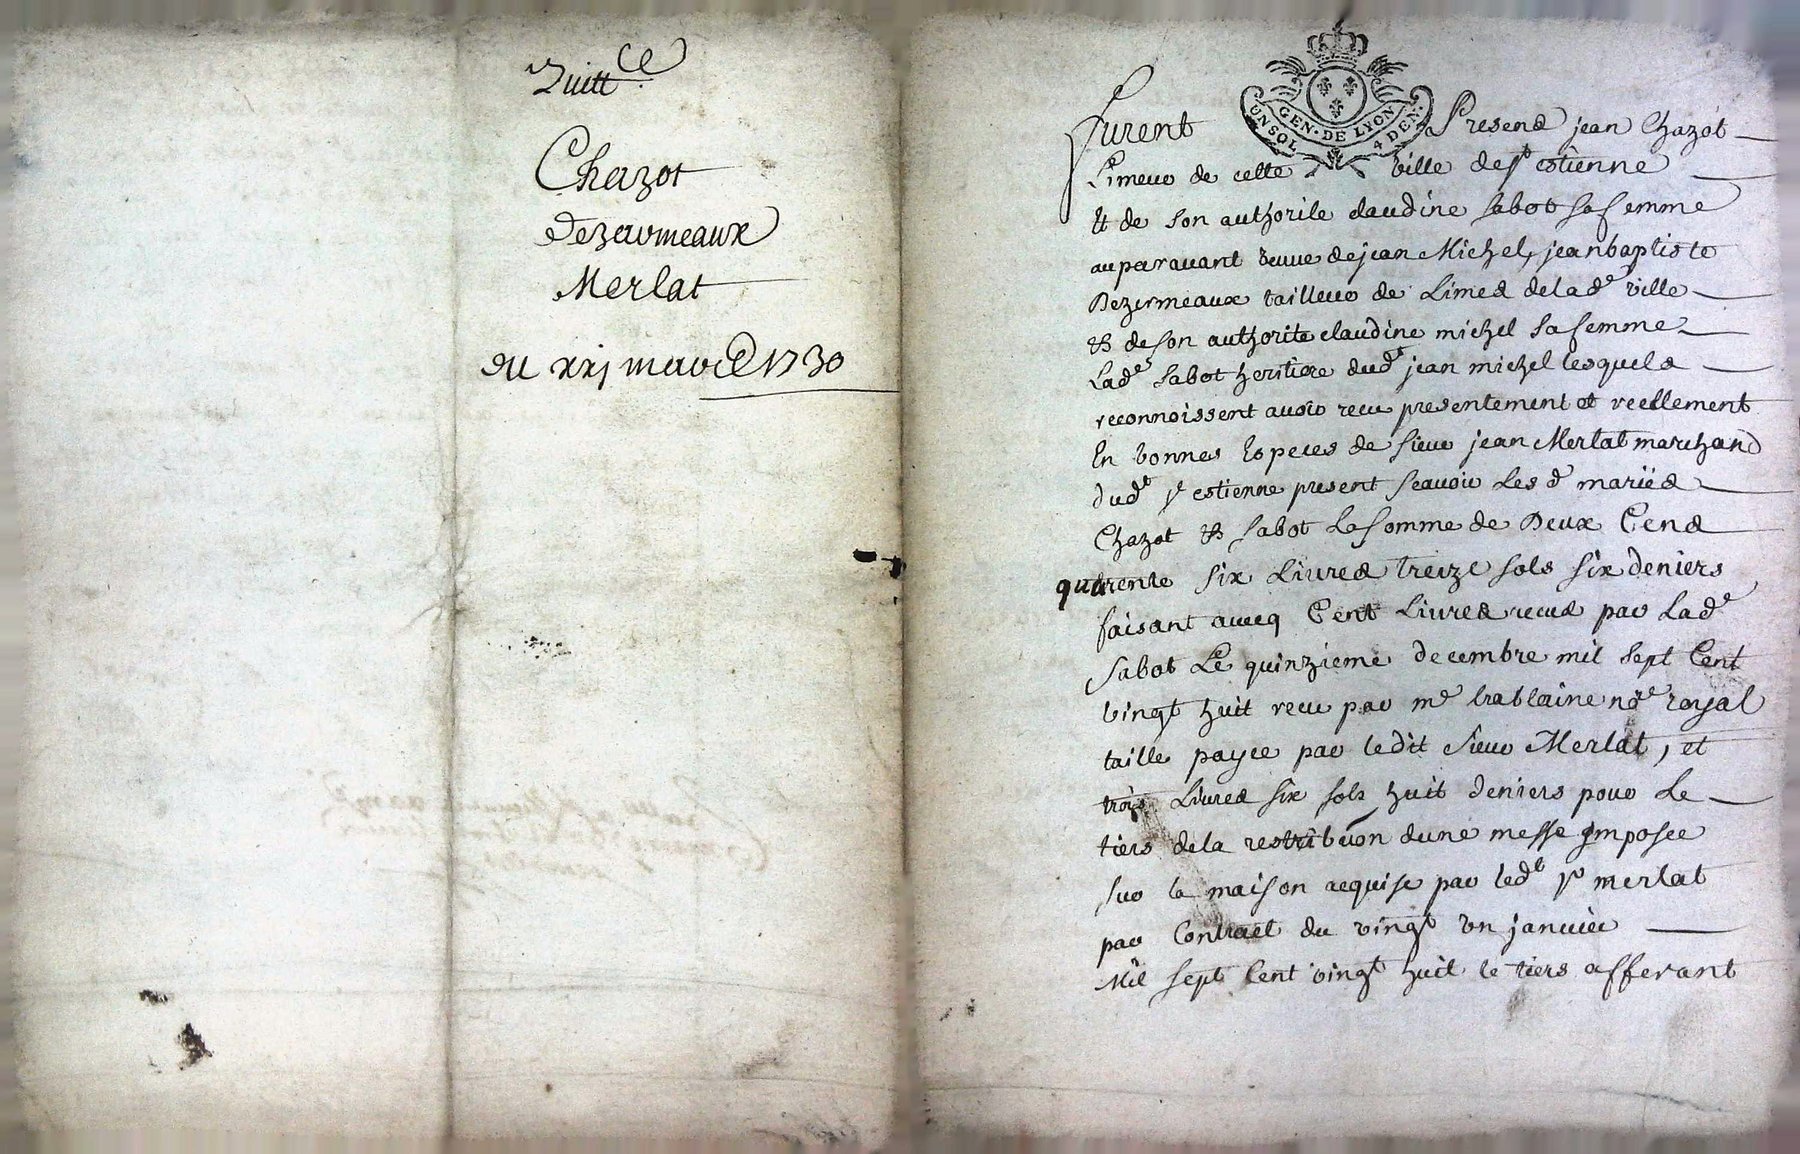 Quitt ce
Chazot
Dezermeaux
Merlat
du xxj mars 1730
GEN. DE LYON
UN SOL 4 DEN.
Furent Presens jean Chazot
Limeur de cette ville de st estienne
Et de son authorité claudine Sabot sa femme
auparavant veuve de jean Michel, jean baptiste
Dezermeaux tailleur de Limes de lade ville
Et de son authorité claudine michel sa femme
Lade Sabot heritiere dudt jean michel lesquels
reconnoissent avoir receu presentement et reellement
En bonnes Especes de sieur jean Merlat marchand
dudt st estienne present scavoir Les d mariés
Chazot Et Sabot La somme de Deux Cens
quarente six Livres treize sols six deniers
faisant avecq Cent Livres receus par Lade
Sabot Le quinzieme decembre mil sept Cent
vingt huit receu par me trablaine nore royal
taille payee par ledit sieur Merlat, et
trois Livres six sols huit deniers pour Le
tiers de la restribuon dune messe jmposee
sur la maison acquise par ledt sr merlat
par Contract du vingt un janvier
Mil sept Cent vingt huit le tiers afferant